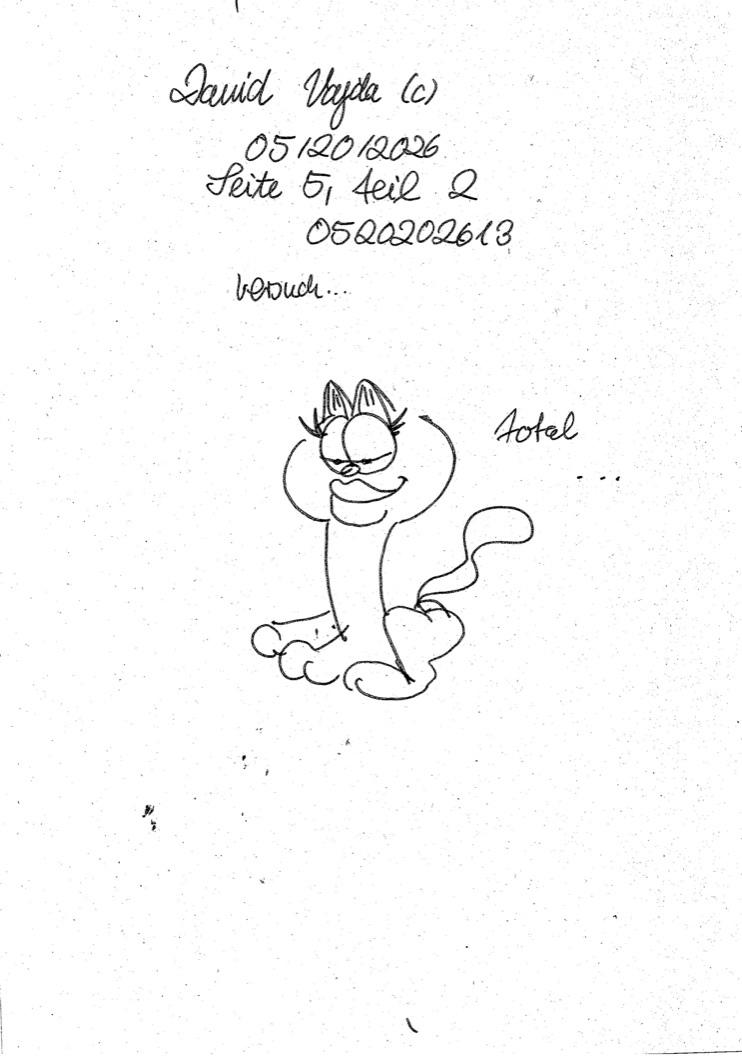 David Vajda (c)
05/20/2026
Seite 5, Teil 2
0520202613
Versuch...
total
...